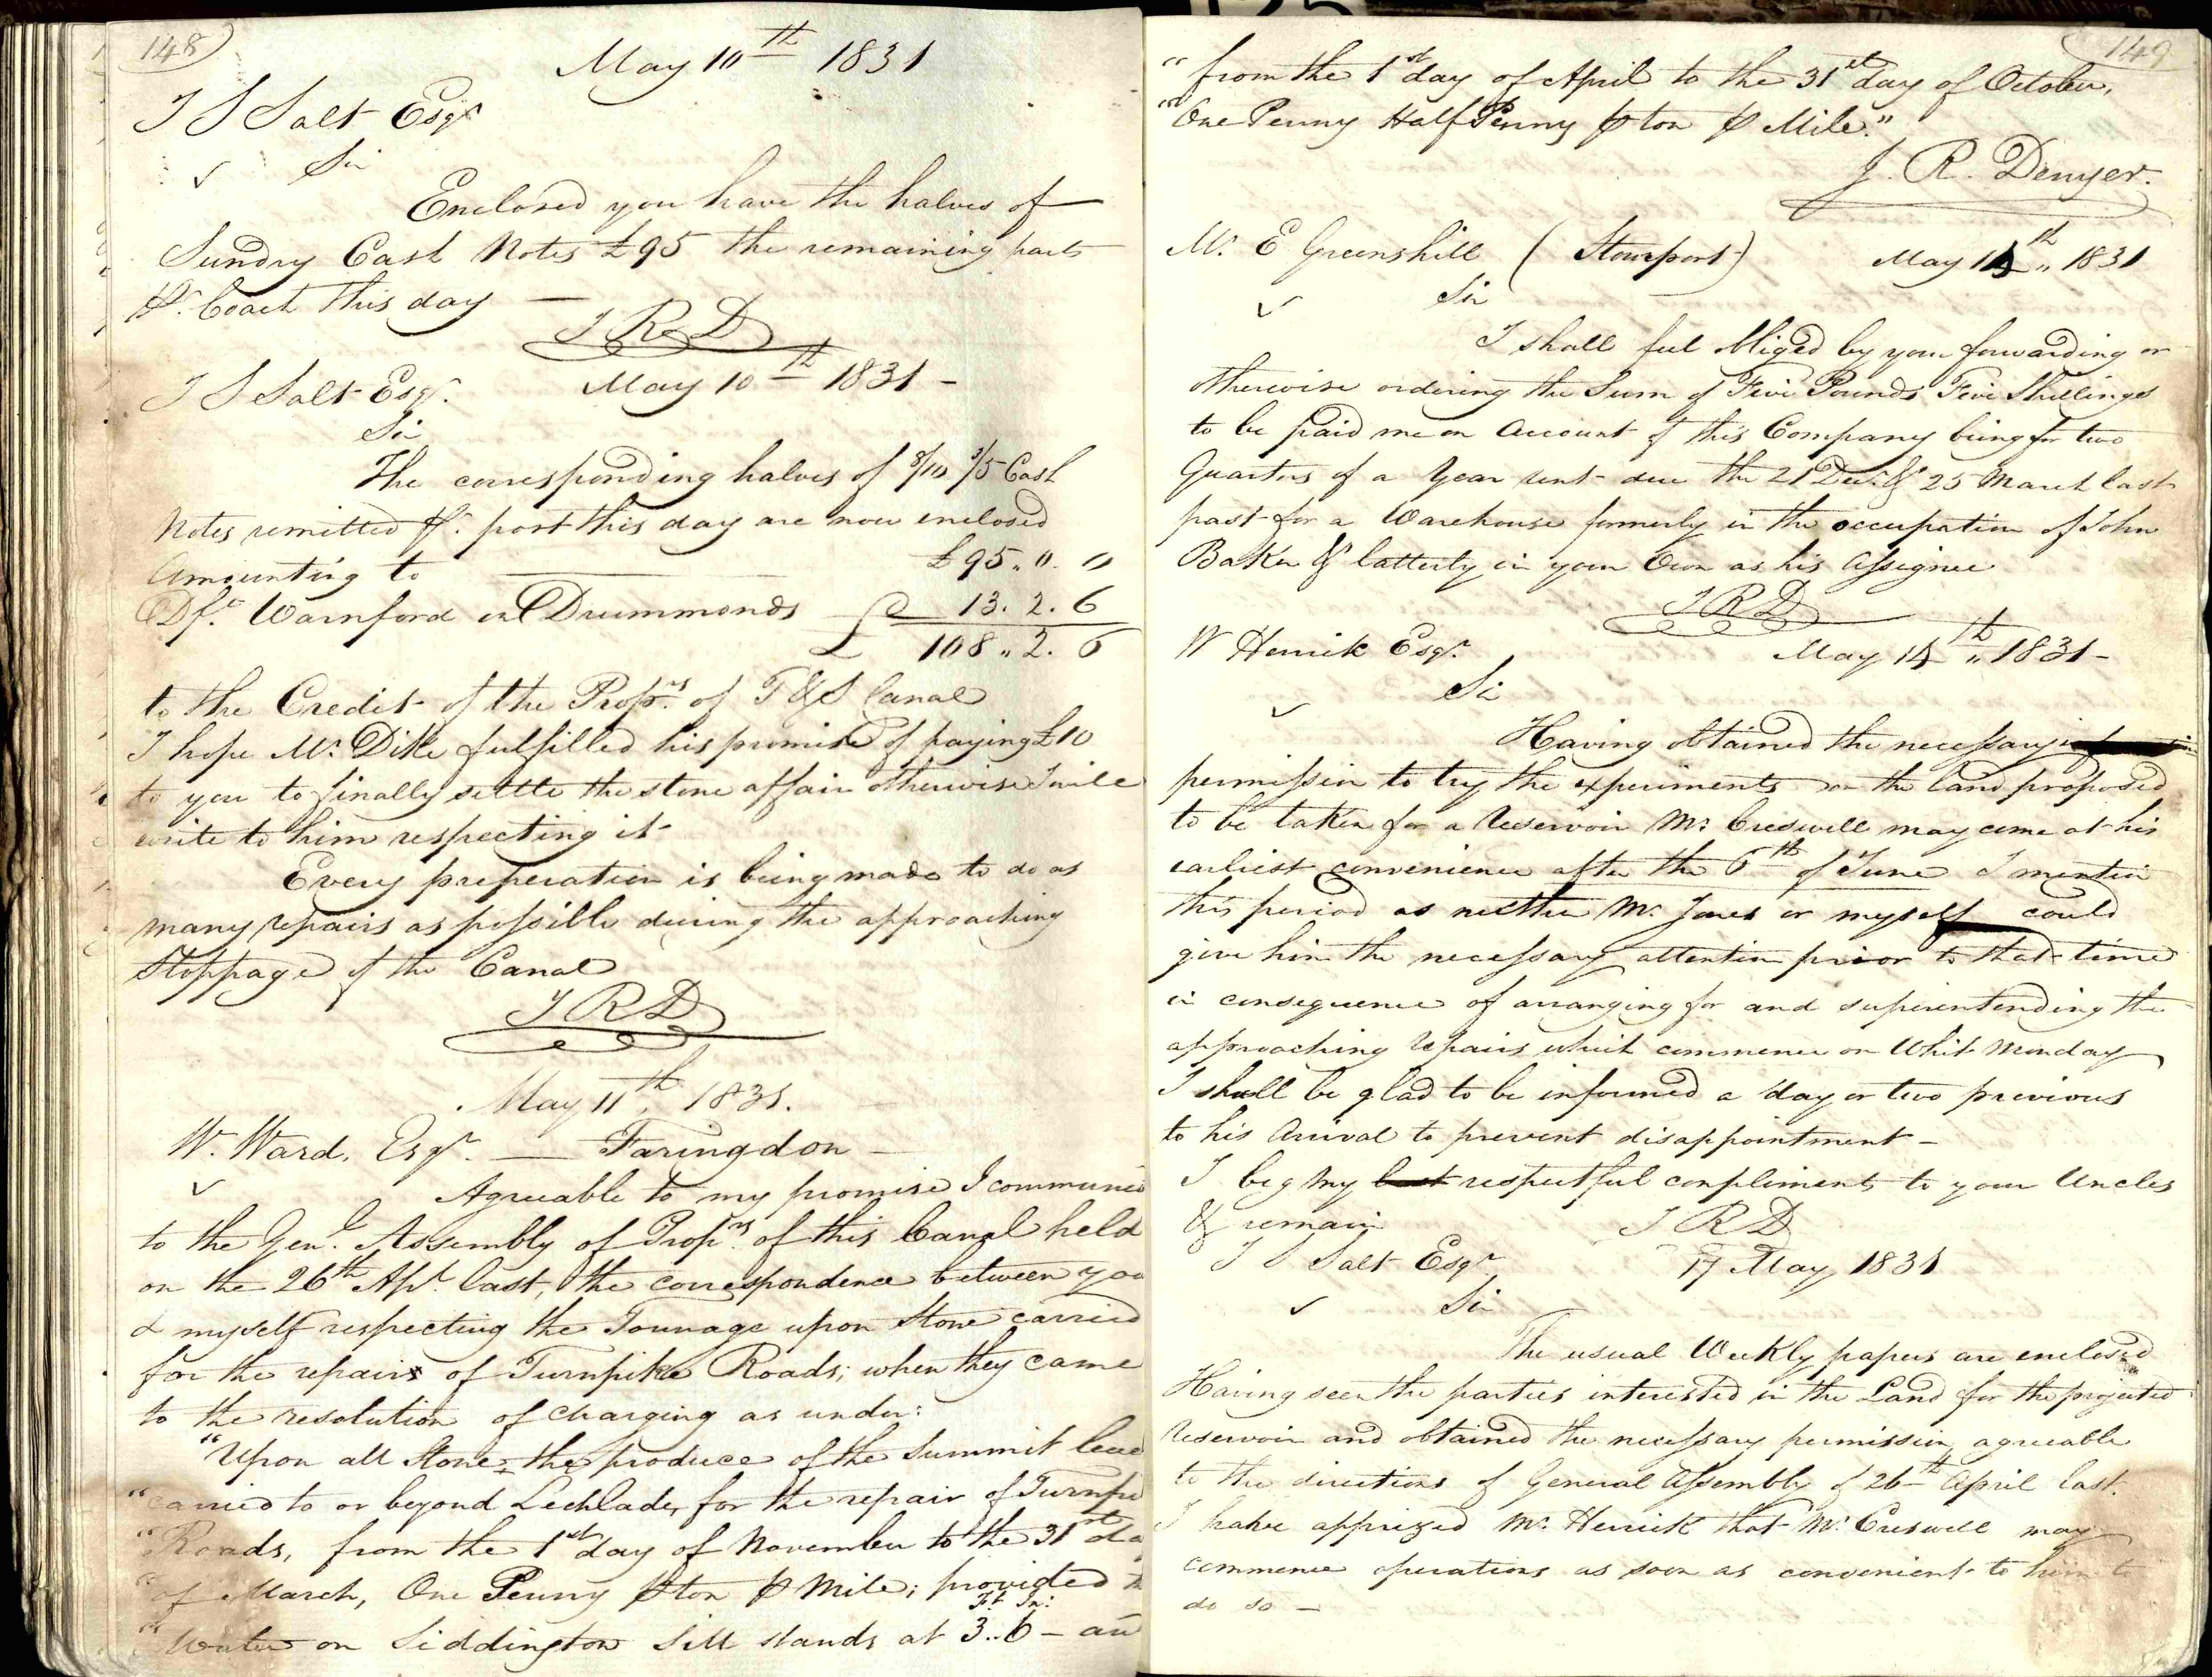 148
May 10th 1831
J S Salt Esqr
Sir
Enclosed you have the halves of
Sundry Cash Notes £95 the remaining parts
Pr. Coach this day —
J R D
J S Salt Esqr. May 10th 1831 -
Sir
The corresponding halves of 8/10 3/5 Cash
Notes remitted Pr. post this day are now enclosed
Amounting to £95 „ 0 . 0
Dft. Warnford on Drummonds 13 . 2 . 6
£ 108 „ 2 . 6
to the Credit of the Proprs. of T & S Canal
I hope Mr. Dike fulfilled his promise of paying £10
to you to finally settle the stone affair otherwise I will
write to him respecting it
Every preperation is being made to do as
many repairs as possible during the approaching
Stoppage of the Canal
J R D
May 11th. 1831.
W. Ward, Esqr. — Faringdon —
Agreeable to my promise I communi
to the Genl. Assembly of Proprs. of this Canal held
on the 26th Apl. last, the correspondence between you
& myself respecting the Tonnage upon Stone carried
for the repairs of Turnpike Roads; when they came
to the resolution of charging as under:
"Upon all Stone, the produce of the Summit leve
"carried to or beyond Lechlade, for the repair of Turnpi
"Roads, from the 1st day of November to the 31st da
"of March, One Penny ⅌ ton ⅌ Mile; provided
Ft. In:
"Water on Siddington Sill stands at 3..6 — an
149
"from the 1st day of April to the 31st day of October,
"One Penny Half Penny ⅌ ton ⅌ Mile."
J. R. Denyer.
Mr. E Greenshill (Stourport) May 14th „ 1831
Sir
I shall feel obliged by your forwarding or
otherwise ordering the Sum of Five Pounds Five Shillings
to be paid me on Account of this Company being for two
Quarters of a Year rent due the 21 Decr. & 25 March last
past for a Warehouse formerly in the occupation of John
Baker & latterly in your Own as his Assignee
J R D
W Herrick Esqr. May 14th „ 1831 -
Sir
Having obtained the necessary
permission to try the experiments on the land proposed
to be taken for a Reservoir Mr. Creswell may come at his
earliest convenience after the 6th of June I mention
this period as neither Mr. Jones or myself could
give him the necessary attention prior to that time
in consequence of arranging for and superintending the
approaching repairs which commence on Whit Monday
I shall be glad to be informed a day or two previous
to his Arrival to prevent disappointment -
I beg my best respectful compliments to your Uncles
& remain J R D
J S Salt Esqr 17 May 1831
Sir
The usual Weekly papers are enclosed
Having seen the parties interested in the Land for the projected
Reservoir and obtained the necessary permission agreeable
to the directions of General Assembly of 26th April last.
I have apprized Mr. Herrick that Mr. Creswell may
commence operations as soon as convenient to him to
do so —